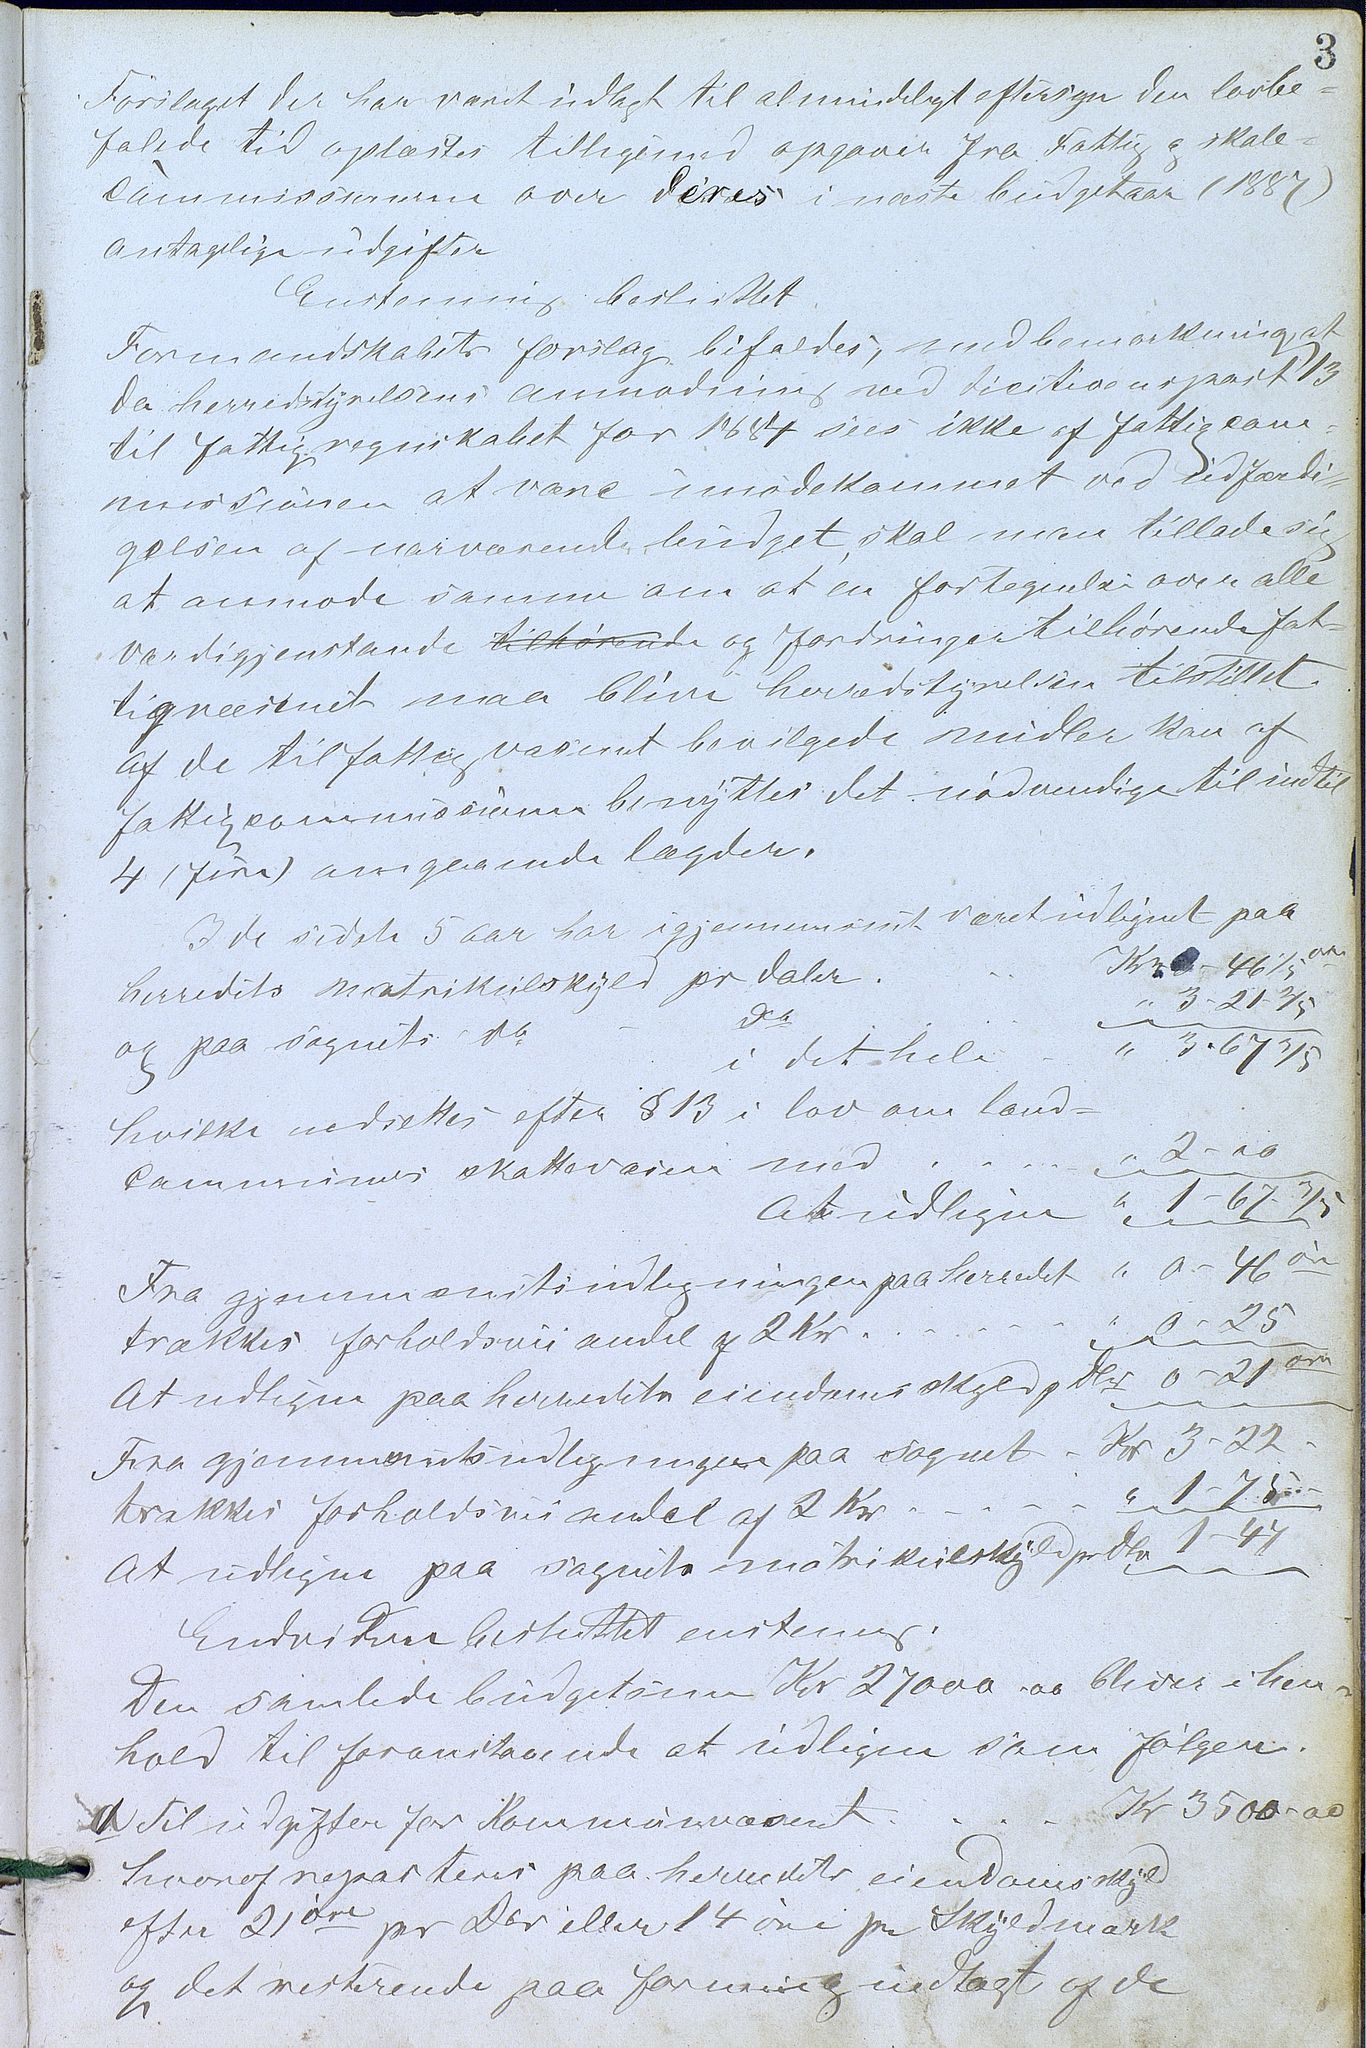 3
Förslaget der har været udlagt til almindeligt eftersyn den lovbe=
falede tid oplæstes tilligemed opgaver fra Fattig og skole=
commissionerne over deres i næste budgetaar (1887)
antagelige udgifter
Enstemmig besluttet
Formandskabets forslag bifaldes, med bemærkning at
da herredstyrelsens anmodning ved decisionspost 13
til fattigregnskabet for 1884 sees ikke af fattigcom=
missionen at være imødekommet ved udfærdi=
gelsen af nærværende budget, skal man tillade sig
at anmode samme om at en fortegnelse over alle
værdigjenstande tilhörende og fordringer tilhörende fat=
tigvæsenet maa blive herredstyrelsen tilstillet.
Af de til fattigvæsenet bevilgede midler kan af
fattigcommissionen benyttes det nödvendige til indtil
4 (fire) omgaaende lægder.
I de sidste 5 aar har igjennemsnit været udlignet paa
herredets matrikulskyld pr daler . . . Kr 0 - 46 1/5 öre
og paa sognets do - do . . . " 3 - 21 - 2/5
i det hele - " 3 - 67 3/5
hvilke nedsættes efter § 13 i lov om land=
communes skattevæsen med . . . . . " 2 - 00
At udligne " 1 - 67 - 3/5
Fra gjennemsnitsudligningen paa herredet " 0 - 46 öre
trækkes forholdsvis andel af 2 Kr . . . . . " 0 - 25
At udligne paa herredets eiendomsskyld p Dlr 0 - 21 öre
Fra gjennemsnitsudligningen paa sognet - Kr 3 - 22 -
trækkes forholdsvis andel af 2 Kr . . . . . " 1 - 75 -
At udligne paa sognets matrikulskyld pr Dlr 1 - 47
Endvidere besluttet enstemmig.
Den samlede budgetsum Kr 27000 - 00 bliver i hen=
hold til foranstaaende at udligne som fölger.
a Til udgifter for Kommunevæsenet . . . . Kr 3500 - 00
hvoraf reparteres paa herredets eiendomsskyld
efter 21 öre pr Dlr eller 14 öre pr Skyldmark
og det resterende paa formue og indtægt af de